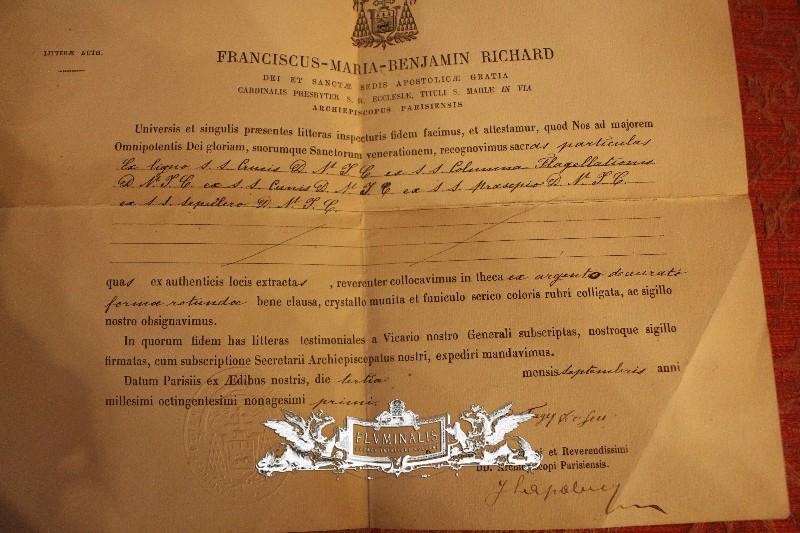 LITTERÆ AUTH.
FRANCISCUS-MARIA-BENJAMIN RICHARD
DEI ET SANCTÆ SEDIS APOSTOLICÆ GRATIA
CARDINALIS PRESBYTER S. R. ECCLESIÆ, TITULI S. MARIÆ IN VIA
ARCHIEPISCOPUS PARISIENSIS
Universis et singulis præsentes litteras inspecturis fidem facimus, et attestamur, quod Nos ad majorem
Omnipotentis Dei gloriam, suorumque Sanctorum venerationem, recognovimus sacras particulas
Ex ligno S. S. Crucis D. Nⁱ J. C. ex S. S. Columna Flagellationis
D. Nⁱ J. C. ex S. S. Cunis D. Nⁱ J. C. ex S. S. Præsepio D. Nⁱ J. C.
ex S. S. Sepulcro D. Nⁱ J. C.
quas ex authenticis locis extractas, reverenter collocavimus in theca ex argento deaurato
formæ rotundæ bene clausa, crystallo munita et funiculo serico coloris rubri colligata, ac sigillo
nostro obsignavimus.
In quorum fidem has litteras testimoniales a Vicario nostro Generali subscriptas, nostroque sigillo
firmatas, cum subscriptione Secretarii Archiepiscopatus nostri, expediri mandavimus.
Datum Parisiis ex Ædibus nostris, die tertia mensis septembris anni
millesimi octingentesimi nonagesimi primi.
FLVMINALIS
et Reverendissimi
DD. Archiepiscopi Parisiensis.